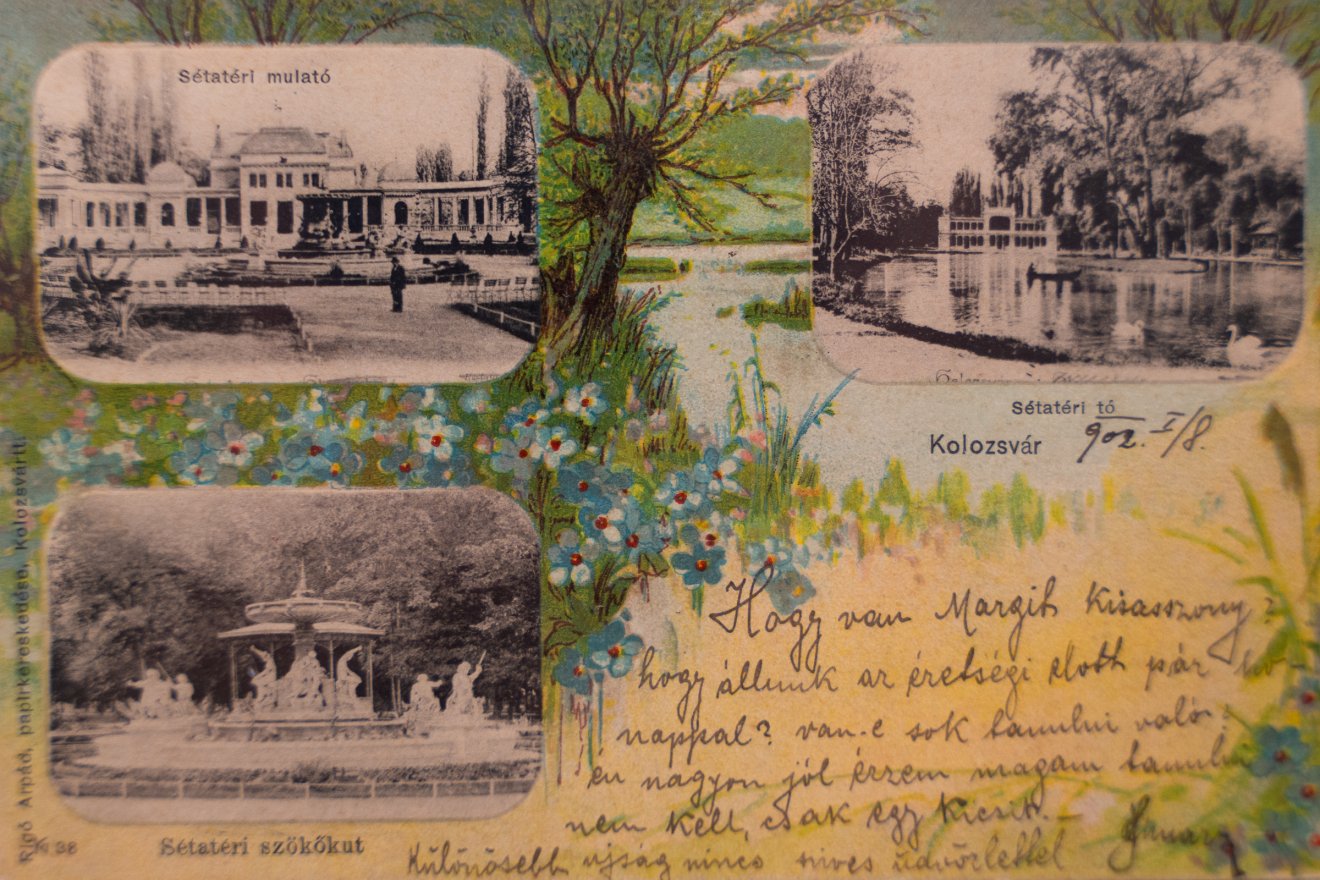 Sétatéri mulató
Sétatéri tó
Kolozsvár
902. I/8.
Hogy van Margit kisasszony?
hogy állunk az érettségi elott pár ho-
nappal? van-e sok tanulni való?
én nagyon jól érzem magam tanulni
nem kell, csak egy kicsit.-
Különösebb ujság nincs szives üdvözlettel
Sétatéri szökőkut
Rigó Árpád, papirkereskedése, Kolozsvártt.
№ 38